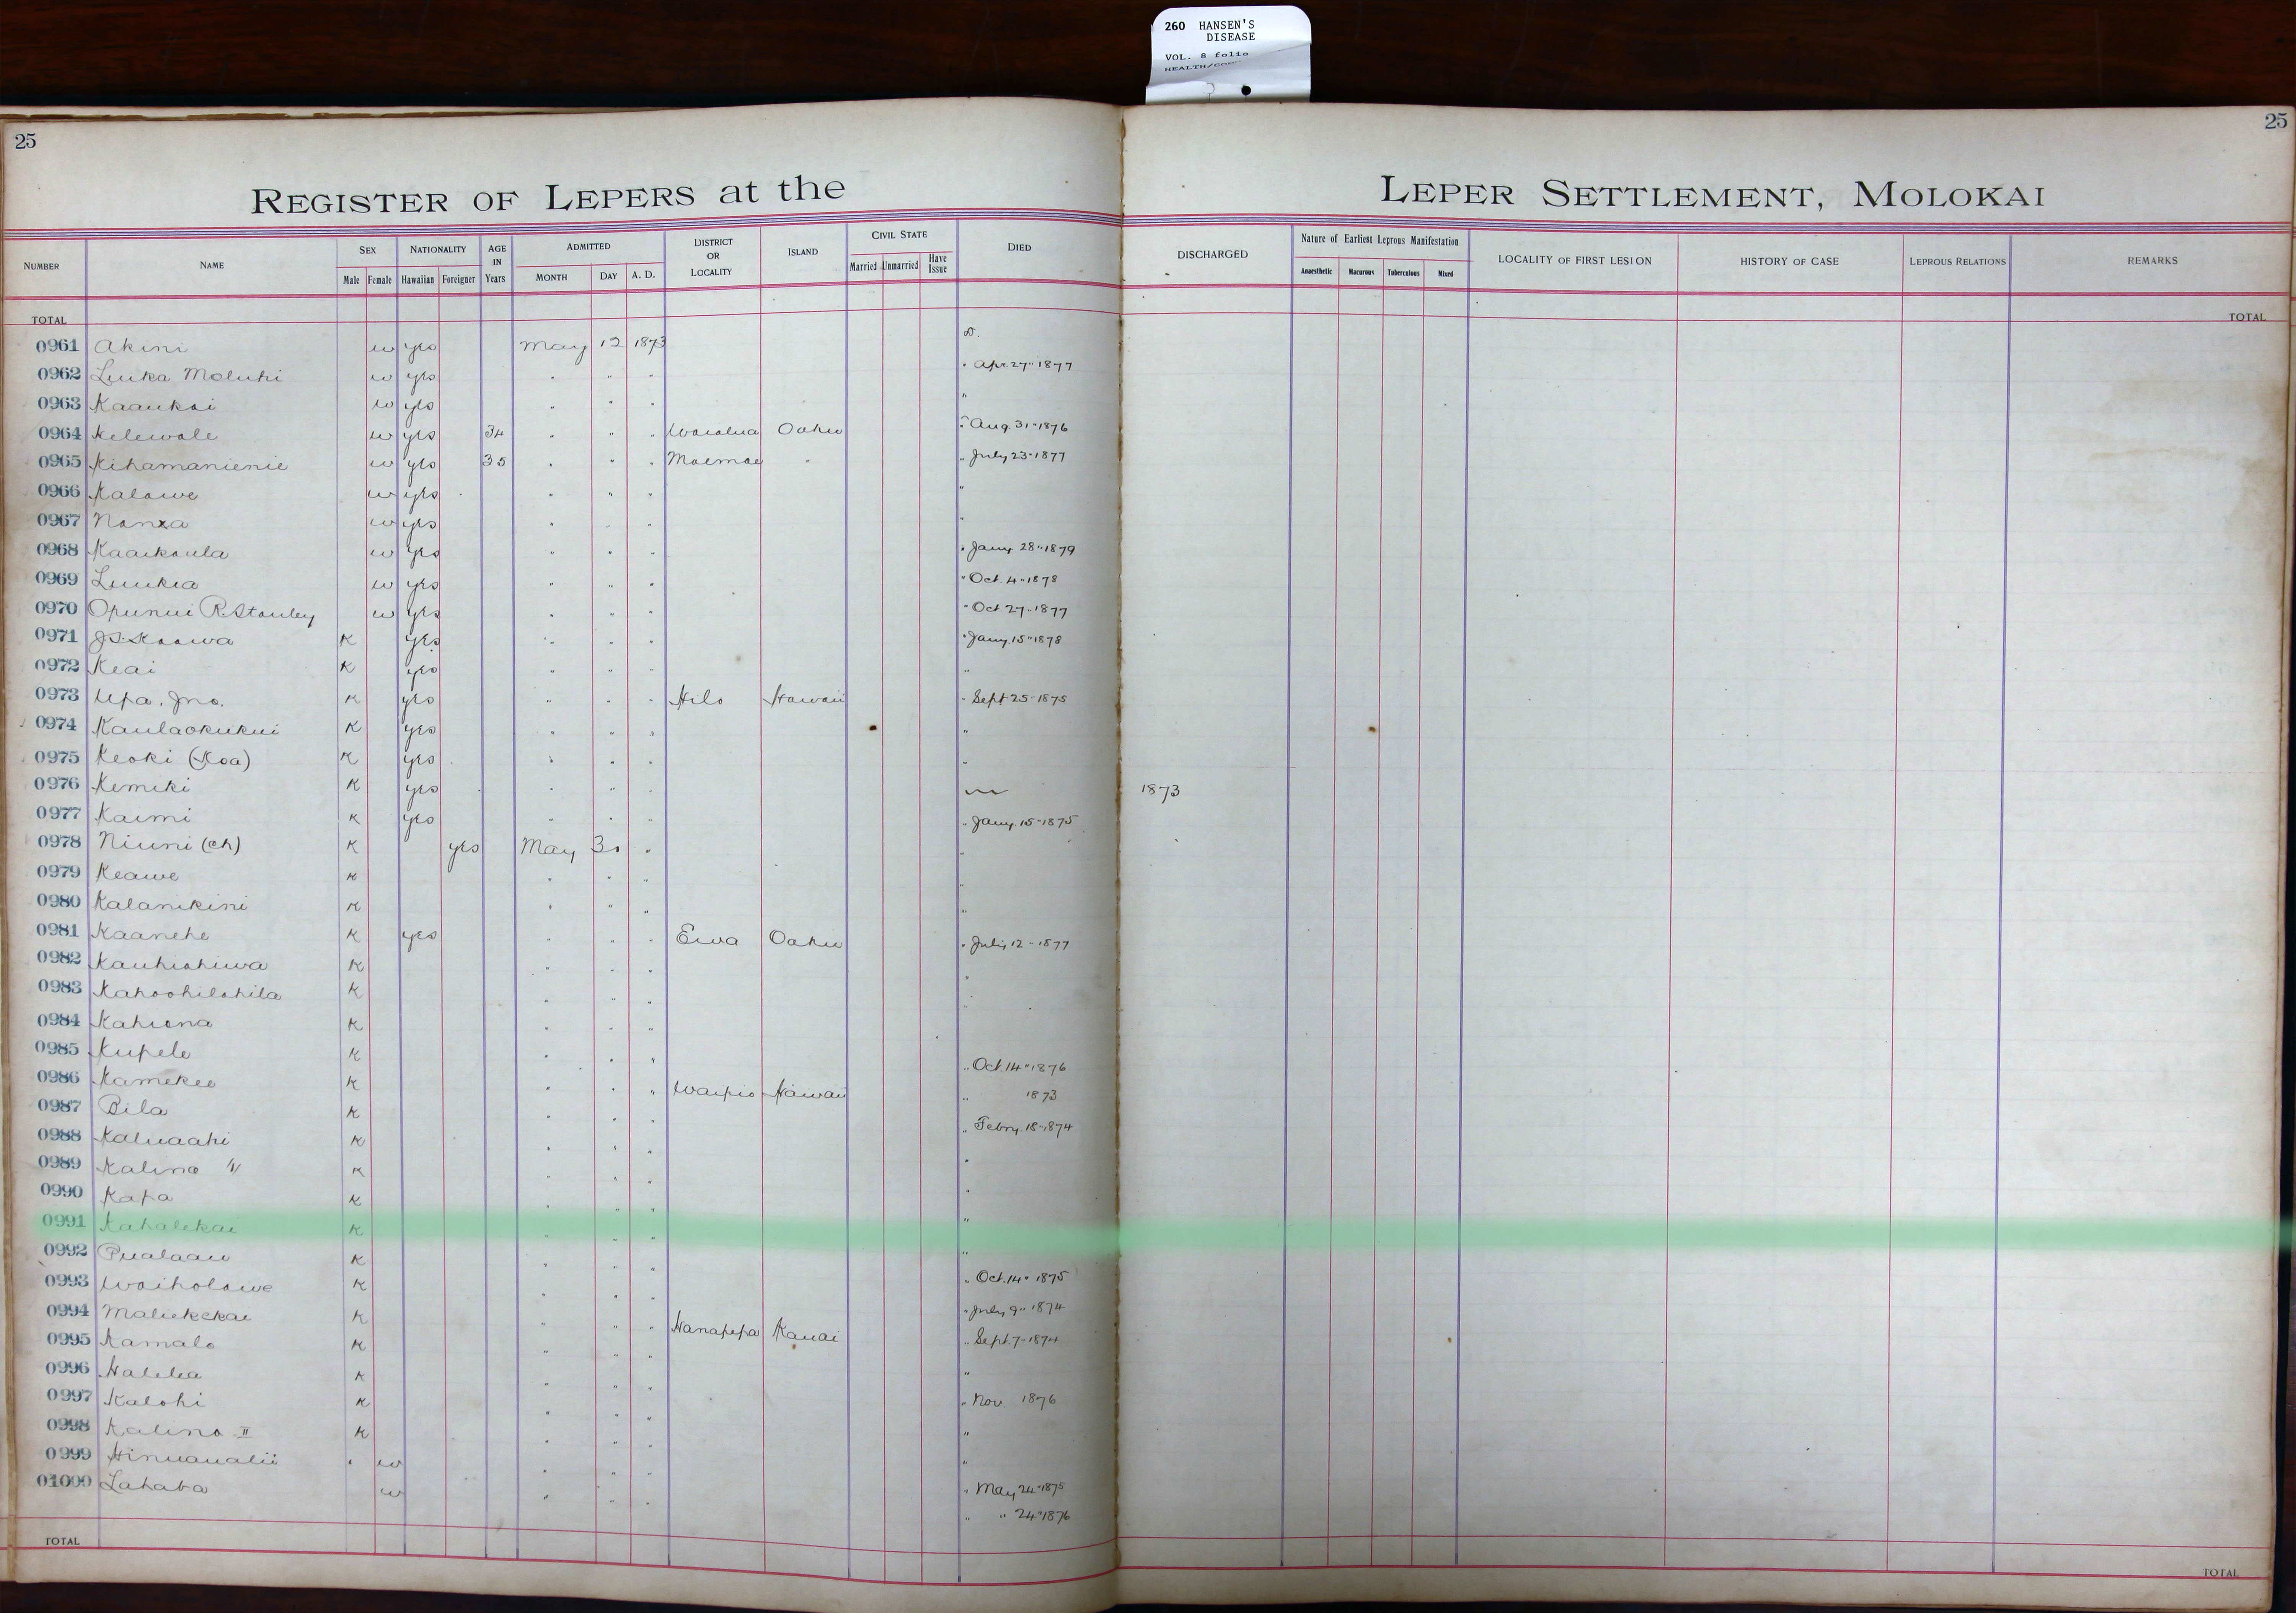 260 HANSEN'S
DISEASE
VOL. 8 folio
25
25
REGISTER OF LEPERS at the LEPER SETTLEMENT, MOLOKAI
NUMBER NAME SEX NATIONALITY AGE IN Years ADMITTED DISTRICT OR LOCALITY ISLAND CIVIL STATE DIED DISCHARGED Nature of Earliest Leprous Manifestation LOCALITY OF FIRST LESION HISTORY OF CASE LEPROUS RELATIONS REMARKS
Male Female Hawaiian Foreigner MONTH DAY A. D. Married Unmarried Have Issue Anaesthetic Macurous Tuberculous Mixed
TOTAL TOTAL
0961 Akini w yes May 12 1873 D.
0962 Luika Moluhi w yes " " " " Apr. 27" 1877
0963 Kaaukai w yes " " " "
0964 Kelewale w yes 34 " " " Waialua Oahu " Aug. 31" 1876
0965 Kihamanienie w yes 35 " " " Moemoe " " July 23" 1877
0966 Kalawe w yes " " " "
0967 w yes " " " "
0968 Kaaikaula w yes " " " " Jany 28" 1879
0969 Luukia w yes " " " " Oct. 4" 1878
0970 Opunui R. Stanley w yes " " " " Oct 27" 1877
0971 J.S. Kaawa K yes " " " " Jany. 15" 1878
0972 Keai K yes " " " "
0973 Upa. Jno. K yes " " " Hilo Hawaii " Sept 25" 1875
0974 Kaulaokukui K yes " " " "
0975 Keoki (Koa) K yes " " " "
0976 Kemiki K yes " " " 1873
0977 Kaimi K yes " " " " Jany. 15" 1875
0978 Niuni (Ch) K yes May 30 " "
0979 Keawe K " " " "
0980 Kalanikini K " " " "
0981 Kaanehe K yes " " " Ewa Oahu " July 12" 1877
0982 Kauhiohiwa K " " " "
0983 Kahoohilohila K " " " "
0984 Kahiona K " " "
0985 Kupele K " " " " Oct. 14" 1876
0986 Kamekeo K " " " Waipio Hawaii " 1873
0987 Bila K " " " " Febry. 18" 1874
0988 Kaluaahi K " " " "
0989 Kalino K " " " "
0990 Kapa K " " " "
0991 Kahalekai K " " " "
0992 Pualaau K " " "
0993 Waiholowe K " " " " Oct. 14" 1875
0994 Maliekekai K " " " Hanapepa Kauai " July 9" 1874
0995 Kamalo K " " " " Sept. 7" 1874
0996 Halelea K " " " "
0997 Kalohi K " " " " Nov. 1876
0998 Kalino II K " " " "
0999 Hinuaualii w " " " "
01000 Lahaba w " " " " May 24" 1875
" " 24" 1876
TOTAL TOTAL